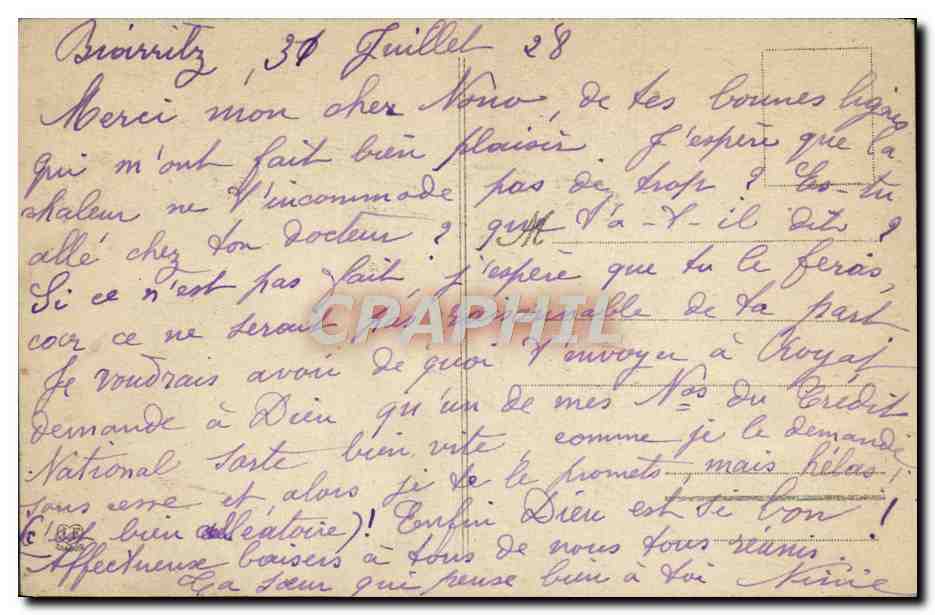 Biarritz, 31 Juillet 28
Merci mon cher Nono, de tes bonnes lignes
qui m'ont fait bien plaisir J'espère que la
chaleur ne t'incommode pas de trop ? Es-tu
allé chez ton docteur ? que t'a-t-il dit ?
M
Si ce n'est pas fait, j'espère que tu le feras,
car ce ne serait pas raisonnable de ta part
CPARAPHIL
Je voudrais avoir de quoi t'envoyer à Royat
demande à Dieu qu'un de mes Nos du Crédit
National sorte bien vite, comme je le demande
sans cesse et, alors je te le promets, mais hélas !
(c'est bien aléatoire)! Enfin Dieu est si bon !
Affectueux baisers à tous de nous tous réunis.
Ta sœur qui pense bien à toi Ninie